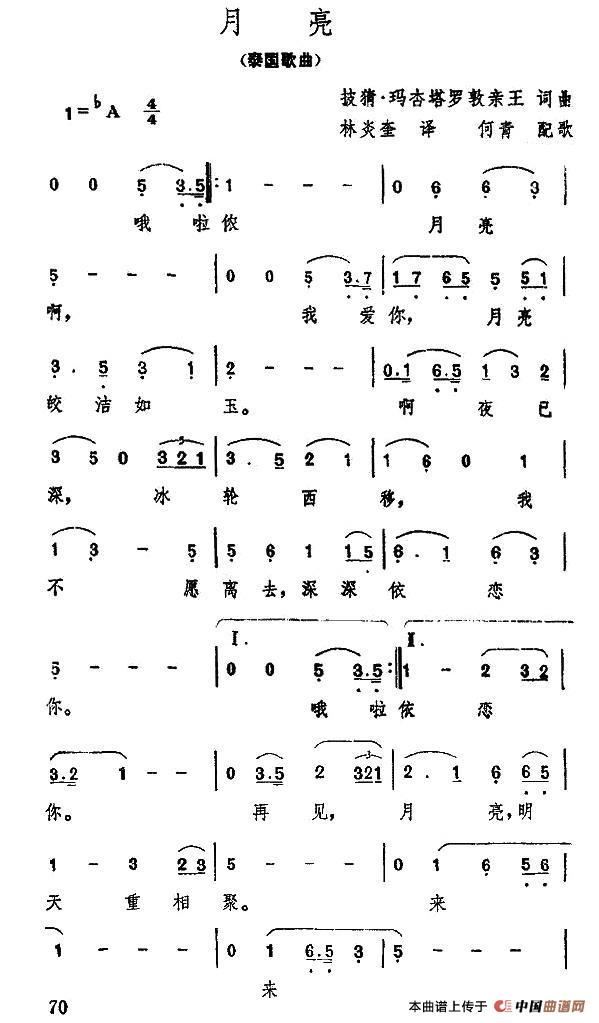 月 亮
（泰国歌曲）
披猜·玛杏塔罗敦亲王 词曲
1=♭A 4/4
林炎奎 译 何青 配歌
0 0 5 3.5 :1 - - - | 0 6 6 3 |
哦 啦 侬 月 亮
5 - - - | 0 0 5 3.7 | 1 7 6 5 5 5 1 |
啊， 我 爱 你， 月 亮
3 . 5 3 1 | 2 - - - | 0.1 6.5 1 3 2 |
皎 洁 如 玉。 啊 夜 已
3 5 0 3 2 1 | 3 . 5 2 1 | 1 6 0 1 |
深， 冰 轮 西 移， 我
1 3 - 5 | 5 6 1 1 5 | 6 . 1 6 3 |
不 愿 离 去，深 深 依 恋
I . II .
5 - - - | 0 0 5 3.5 :1 - 2 3 2 |
你。 哦 啦 依 恋
3.2 1 - - | 0 3.5 2 3 2 1 | 2 . 1 6 6 5 |
你。 再 见， 月 亮，明
1 - 3 2 3 | 5 - - - | 0 1 6 5 6 |
天 重 相 聚。 来
1 - - - | 0 1 6.5 3 | 5 - - - |
来
70
本曲谱上传于 中国曲谱网